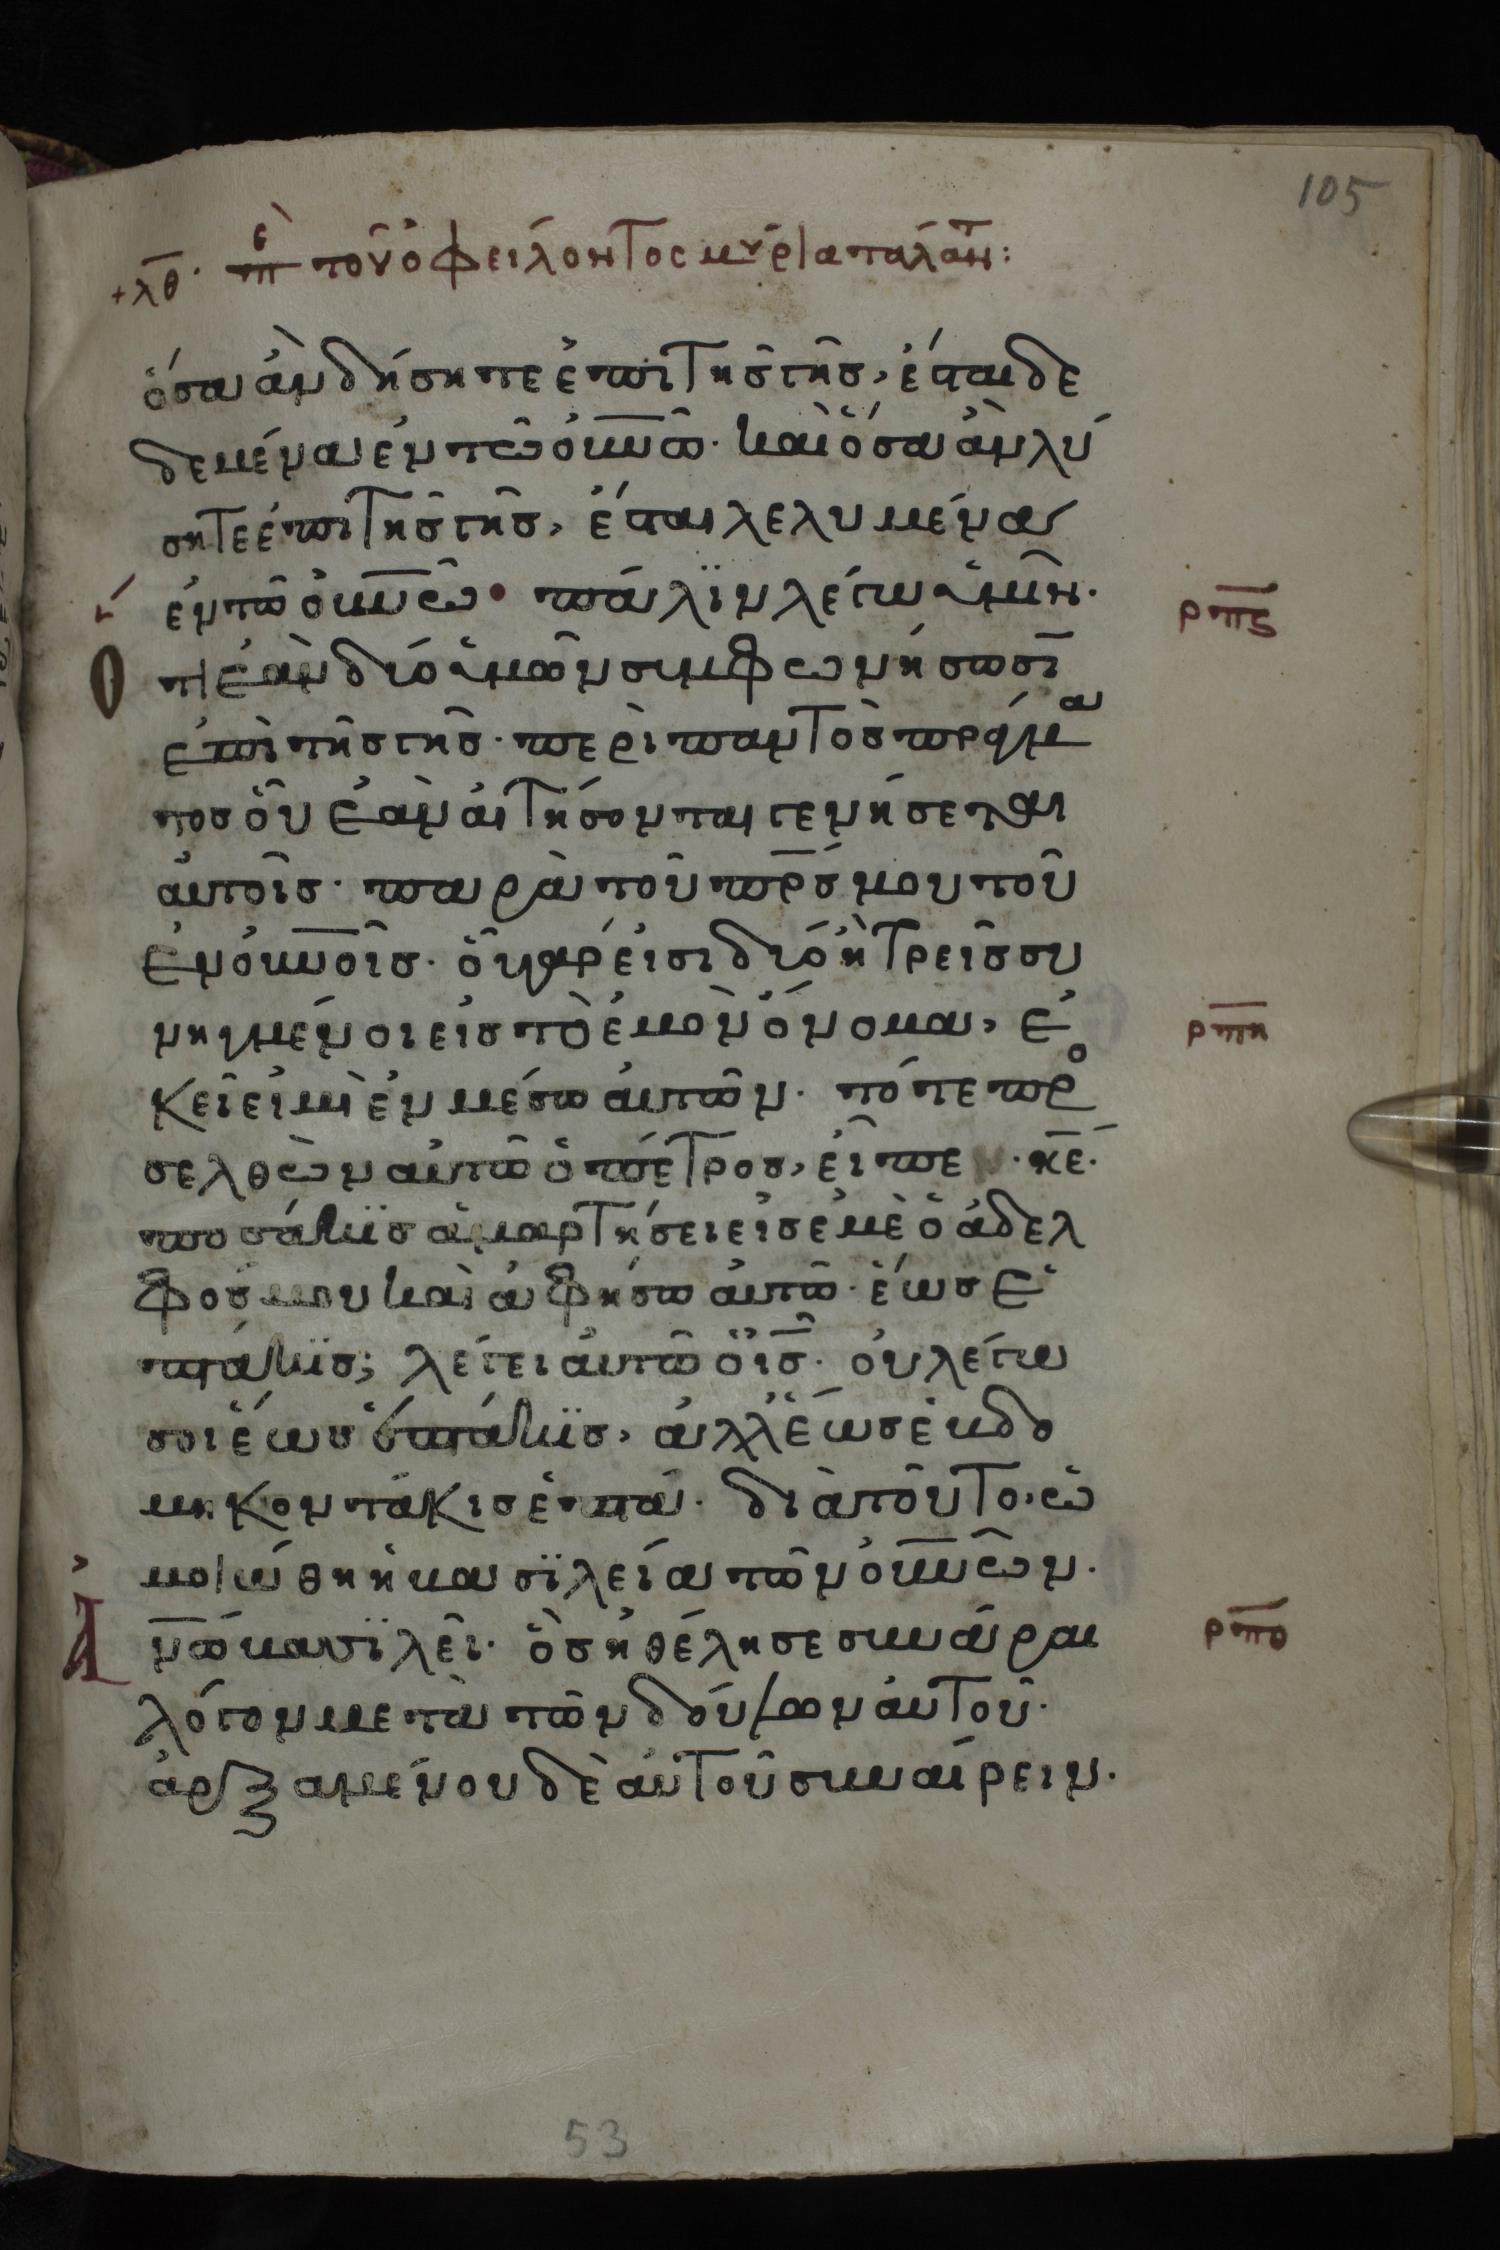 105
+λθ· πε τοῦ ὀφείλοντος μύρια ταλάν:
ὅσα ἀν δήσητε ἐπι τῆς γῆς, ἔσται δε
δεμένα ἐν τῶ ουνῶ. καὶ ὅσα ἀν λύ
σητε ἐπι τῆς γῆς, ἔσται λελυμένα
ἐν τῶ ουνῶ· πάλϊν λέγω ὑμῖν.
ρπζ
ὅτι ἐὰν δύο ὑμῶν συμφωνήσωσι
ἐπὶ τῆς γῆς. περὶ παντὸς πράγμα
τος οὗ ἐὰν αἰτήσονται γενήσεται
αὐτοῖς. παρὰ τοῦ πρς μου τοῦ
ἐν ουνοῖς. οὗ γάρ εἰσι δύο ἢ τρεῖς συ
νηγμένοι εἰς τὸ ἐμὸν ὄνομα, ἐ
ρπη
κεῖ εἰμὶ ἐν μέσω αὐτῶν. τότε προ
σελθὼν αὐτῶ ὁ πέτρος, εἶπε · κε.
ποσάκϊς ἁμαρτήσει εἰς ἐμὲ ὁ ἀδελ
φός μου καὶ ἀφήσω αὐτῶ. ἕως ἑ
πτάκϊς; λέγει αὐτῶ ὁ ις. οὐ λέγω
σοι ἕως ἑπτάκϊς, ἀλλ ἕως ἑβδο
μηκοντάκις ἑπτά. διὰ τοῦτο, ὡ
μοιώθη ἡ βασϊλεία τῶν ουνῶν.
ἀνῶ βασϊλεῖ. ὃς ἠθέλησε συνάραι
ρπθ
λόγον μετὰ τῶν δούλων αὐτοῦ.
ἀρξαμένου δὲ αὐτοῦ συναίρειν.
53